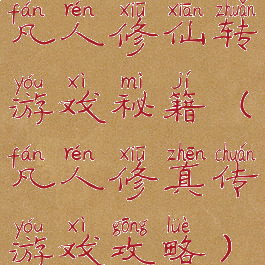 fán rén xiū xiān zhuǎn
凡人修仙转
yóu xì mì jí
游戏秘籍（
fán rén xiū zhēn chuán
凡人修真传
yóu xì gōng lüè
游戏攻略）